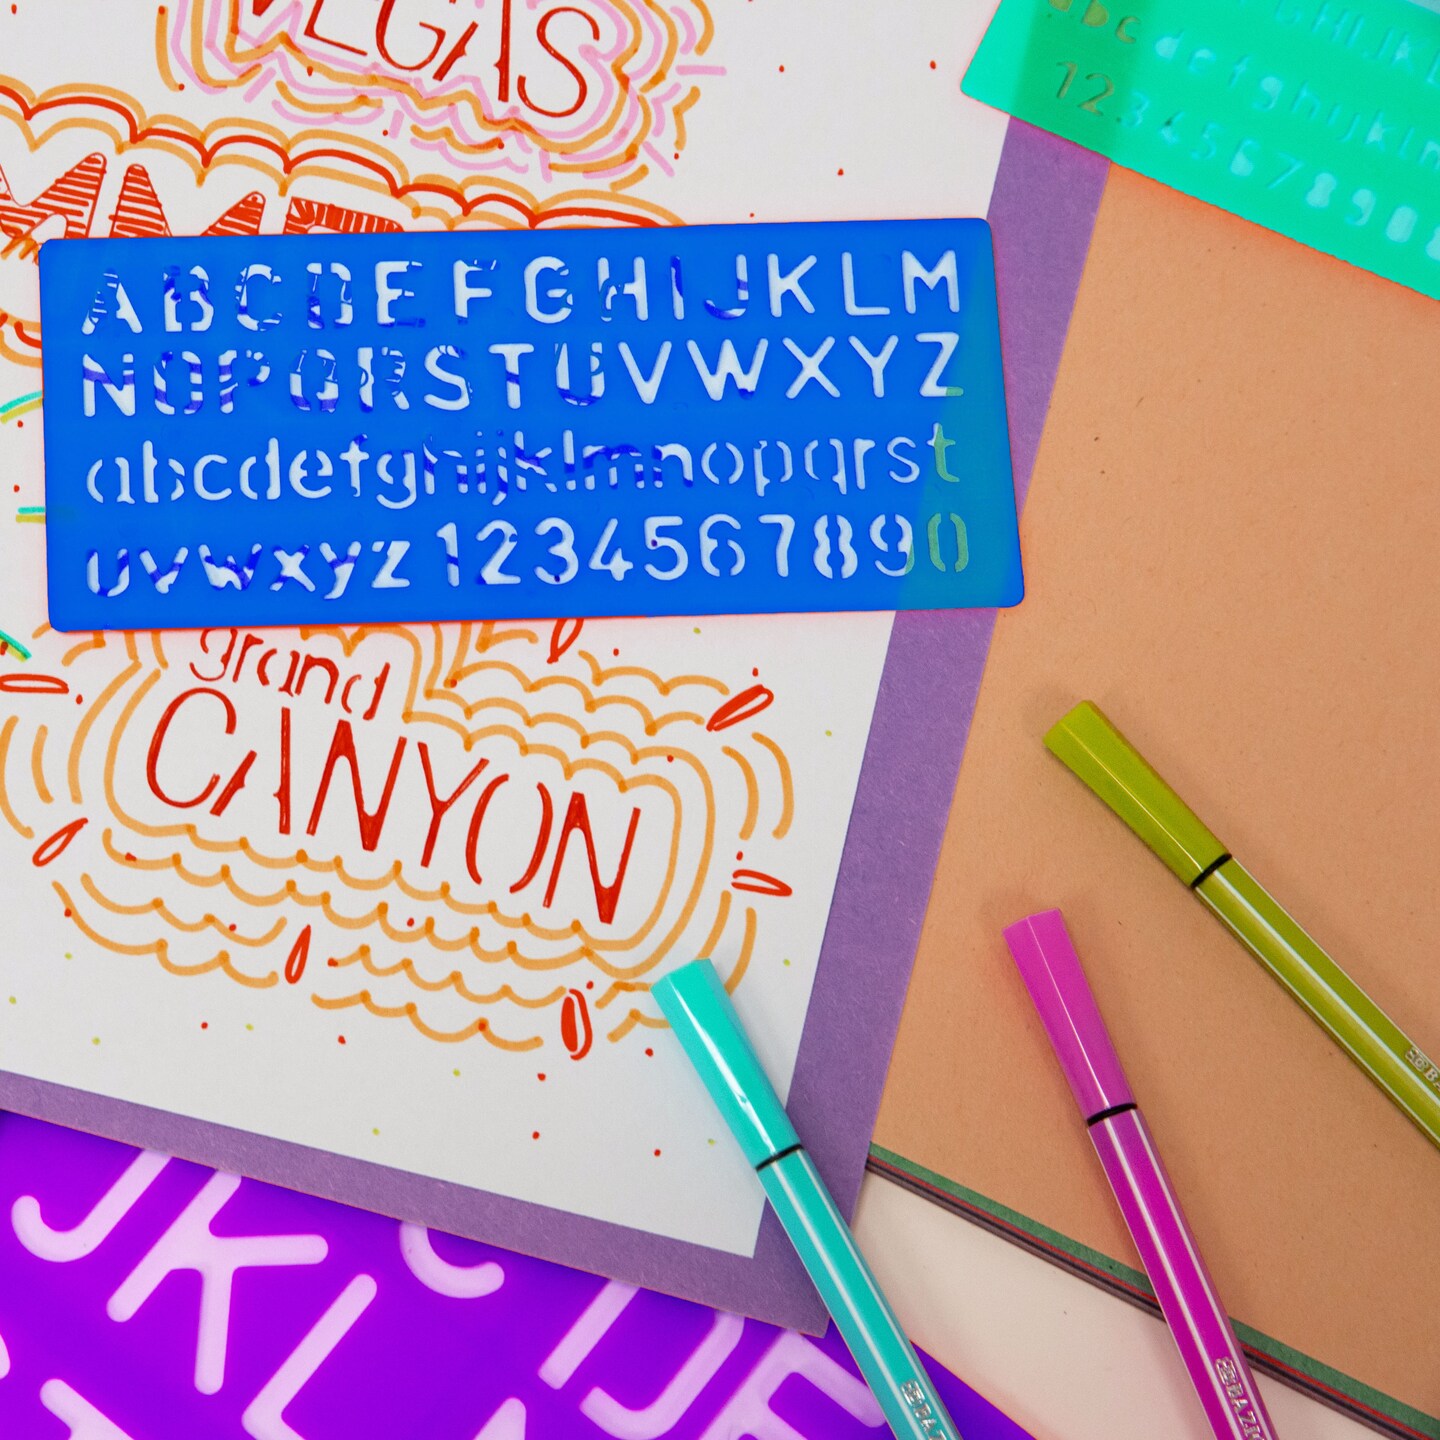 VEGAS
abcdefghijkln
1234567890
ABCDEFGHIJKLM
NOPQRSTUVWXYZ
abcdefghijklmnopqrst
uvwxyz 1234567890
grand
CANYON
JKL